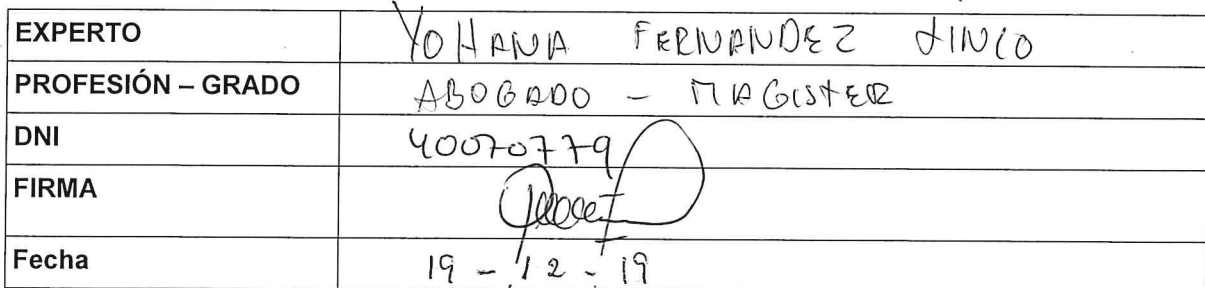 EXPERTO YOHANA FERNANDEZ
PROFESIÓN – GRADO ABOGADO – MAGISTER
DNI 40070779
FIRMA
Fecha 19 - 12 - 19